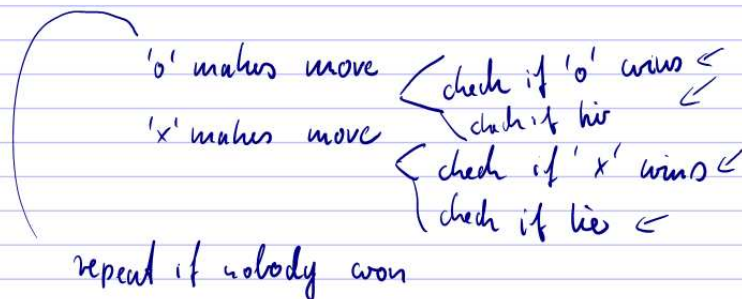 'o' makes move
check if 'o' wins
check if tie
'x' makes move
check if 'x' wins
check if tie
repeat if nobody won